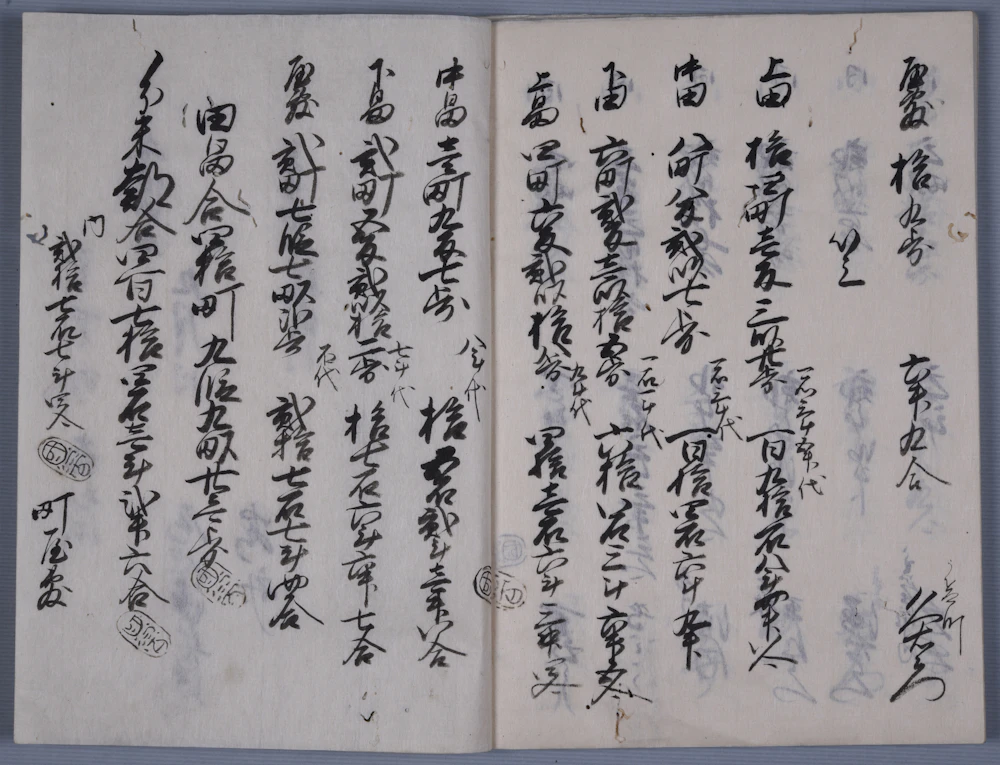 屋敷 拾九歩 六升九合 久右衛門
以上
上田 拾四町壱反三畝廿三歩 一石三斗五升代 百九拾石八斗五升八合
中田 八町八反弐畝七歩 一石三斗代 百拾四石六斗九升
下田 六町弐反壱畝拾五歩 一石一斗代 六拾八石三斗六升五合
上畠 四町六反弐畝拾五歩 九斗代 四拾壱石六斗二升四合
中畠 壱町九反七歩 八斗代 拾五石弐斗壱升八合
下畠 弐町五反弐畝拾二歩 七斗代 拾七石六斗六升七合
屋敷 弐町七段七畝壱歩 石代 弐拾七石七斗四合
田畠合四拾町九段九畝廿歩
分米都合四百七拾六石壱斗弐升六合
内
弐拾七石七斗四合 町屋敷